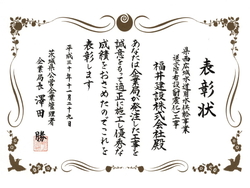 表彰状
県西広域水道用水供給事業
送水管布設耐震化工事
福井建設株式会社殿
あなたは企業局が発注した工事を
誠意をもって適正に施工し優秀な
成績をおさめたのでこれを
表彰します
平成三十年十一月二十九日
茨城県公営企業管理者
企業局長 澤田 勝